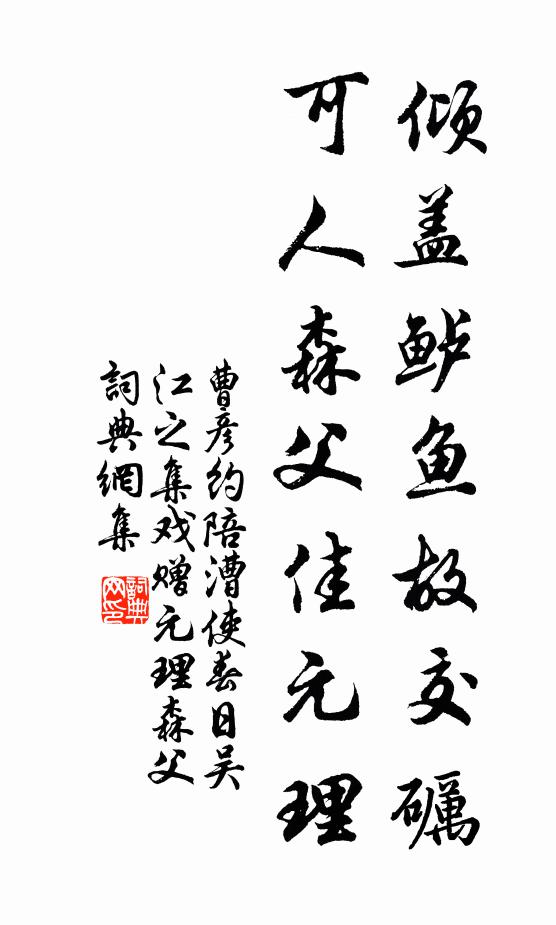 倾盖鲈鱼故交砺
可人森父佳元理
曹彦约陪漕使春日吴
江之集戏赠元理森父
詞典網集
詞典